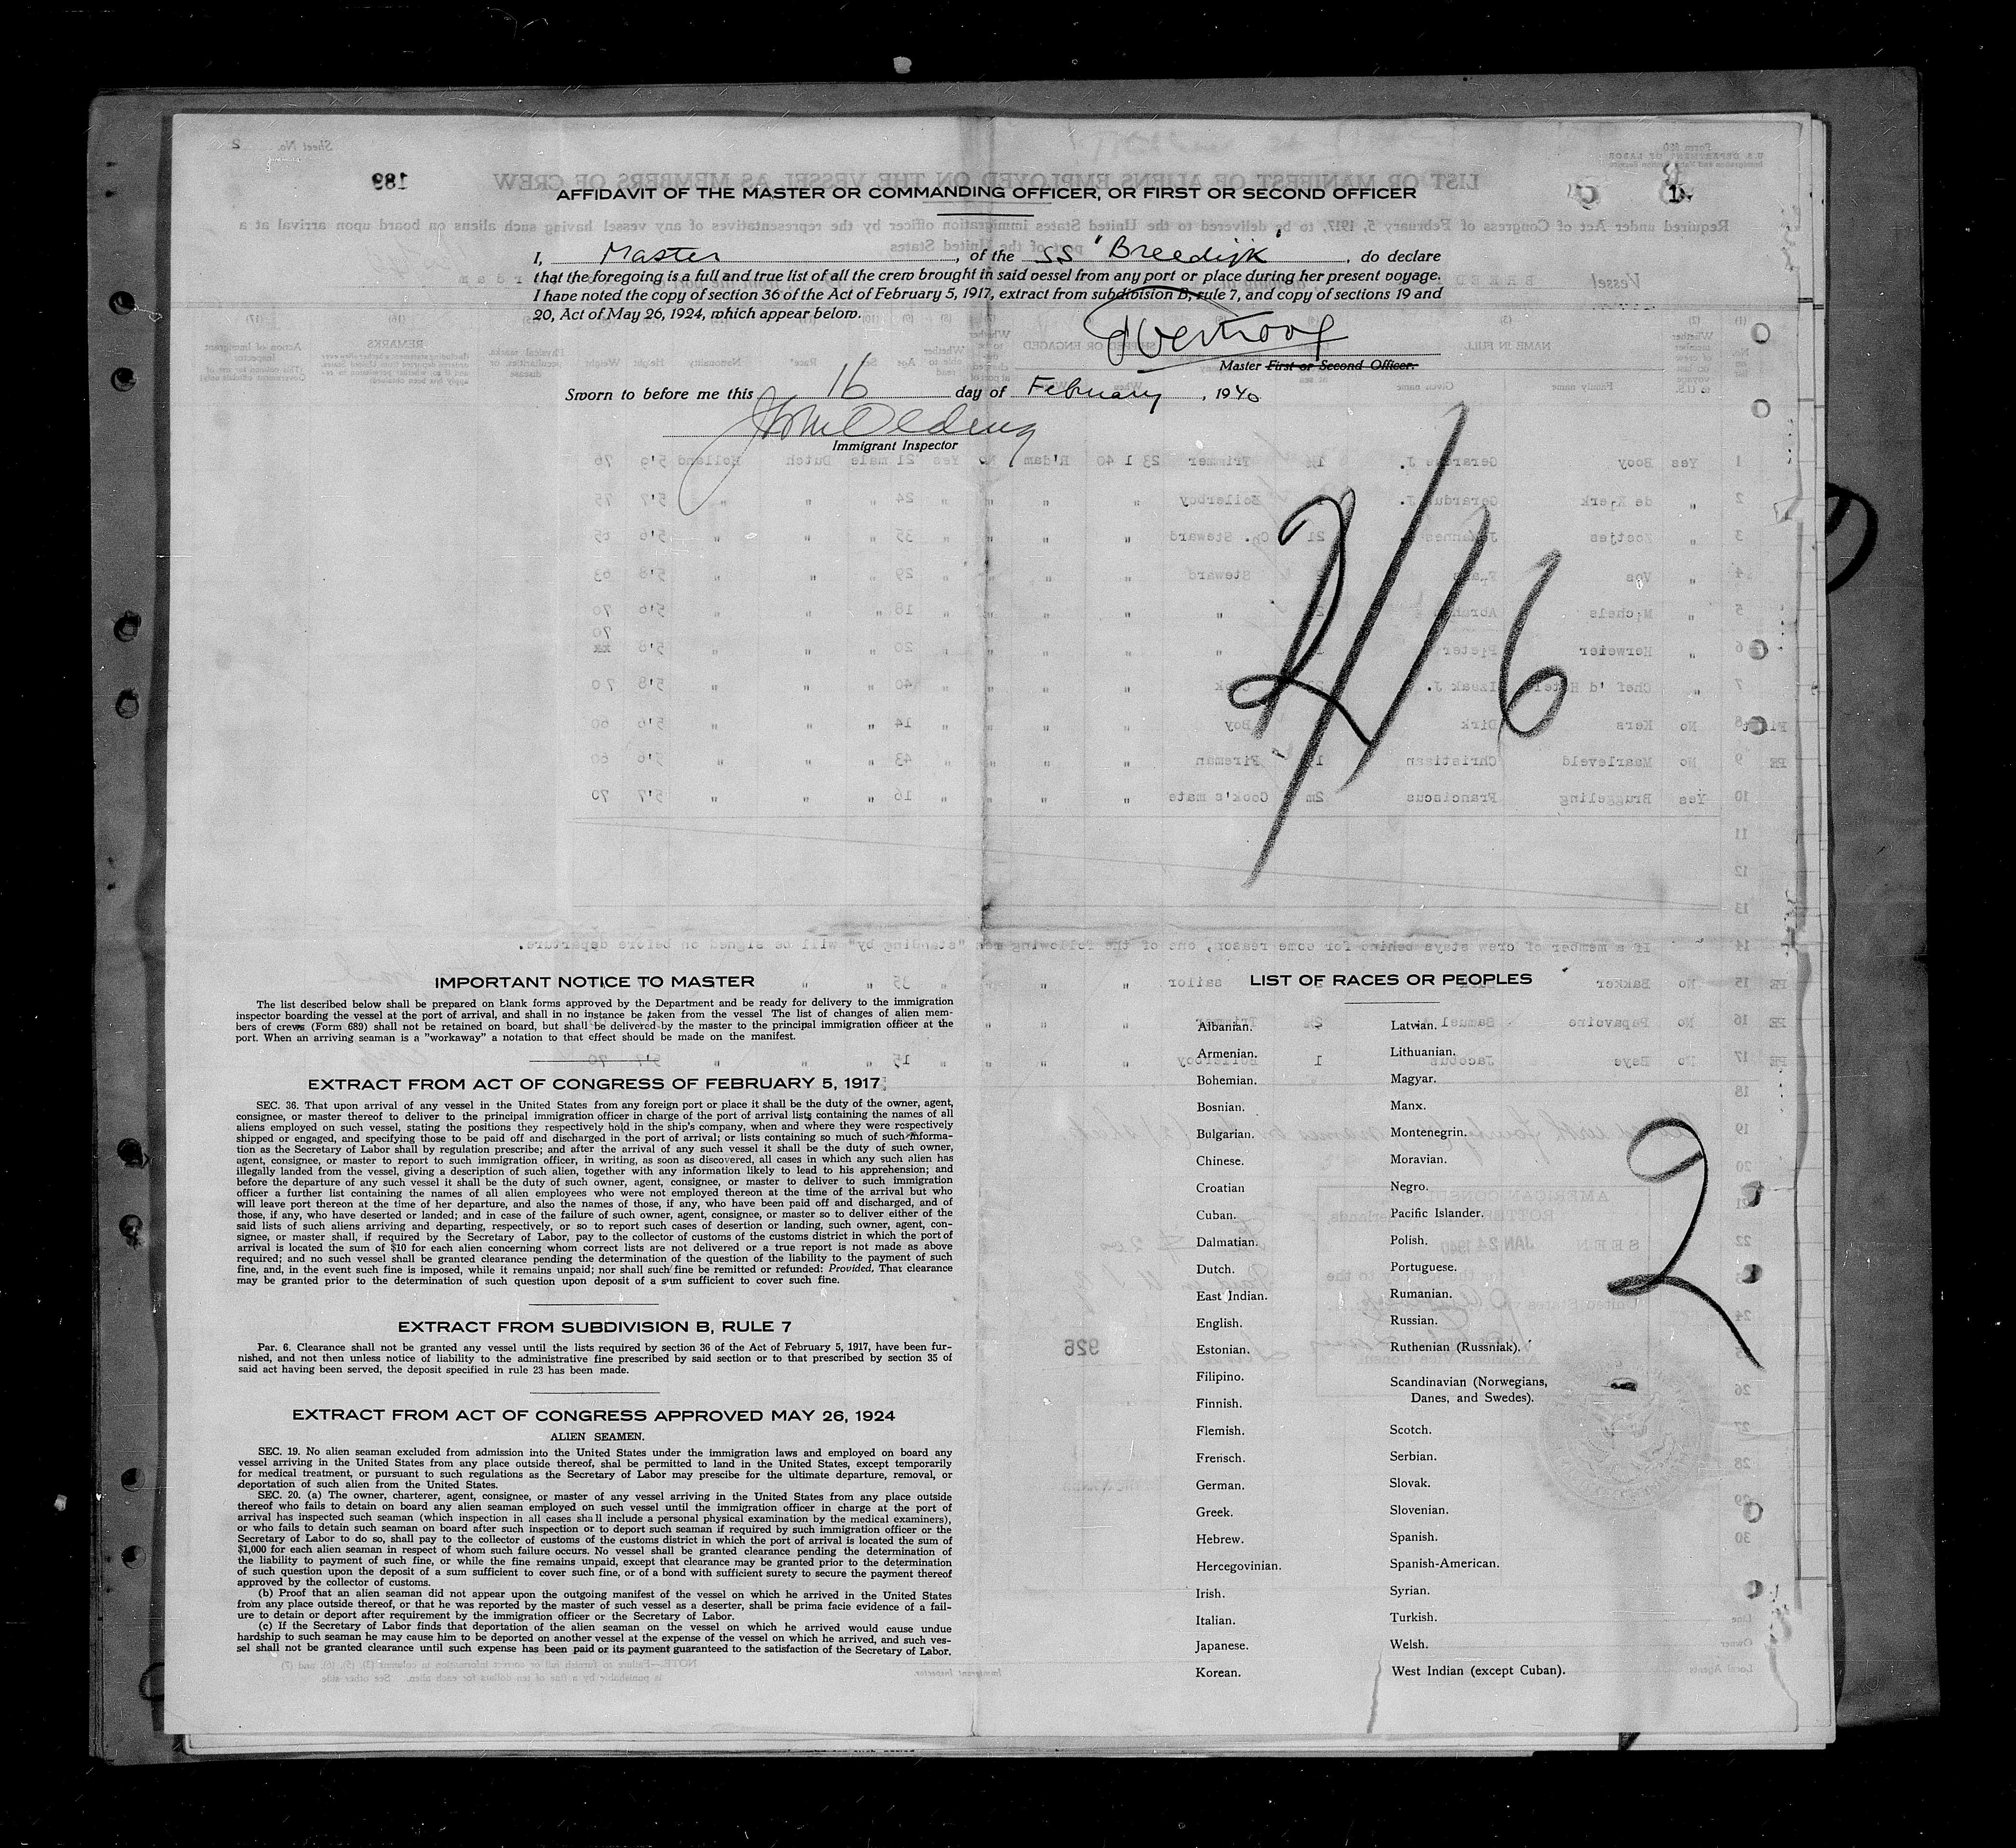 AFFIDAVIT OF THE MASTER OR COMMANDING OFFICER, OR FIRST OR SECOND OFFICER
1.
I, Master, of the SS "Breedijk", do declare
that the foregoing is a full and true list of all the crew brought in said vessel from any port or place during her present voyage.
I have noted the copy of section 36 of the Act of February 5, 1917, extract from subdivision B, rule 7, and copy of sections 19 and
20, Act of May 26, 1924, which appear below.
Master First or Second Officer.
Sworn to before me this 16 day of February, 1940
Immigrant Inspector
2/16
IMPORTANT NOTICE TO MASTER
The list described below shall be prepared on blank forms approved by the Department and be ready for delivery to the immigration
inspector boarding the vessel at the port of arrival, and shall in no instance be taken from the vessel The list of changes of alien mem-
bers of crews (Form 689) shall not be retained on board, but shall be delivered by the master to the principal immigration officer at the
port. When an arriving seaman is a "workaway" a notation to that effect should be made on the manifest.
EXTRACT FROM ACT OF CONGRESS OF FEBRUARY 5, 1917
SEC. 36. That upon arrival of any vessel in the United States from any foreign port or place it shall be the duty of the owner, agent,
consignee, or master thereof to deliver to the principal immigration officer in charge of the port of arrival lists containing the names of all
aliens employed on such vessel, stating the positions they respectively hold in the ship's company, when and where they were respectively
shipped or engaged, and specifying those to be paid off and discharged in the port of arrival; or lists containing so much of such informa-
tion as the Secretary of Labor shall by regulation prescribe; and after the arrival of any such vessel it shall be the duty of such owner,
agent, consignee, or master to report to such immigration officer, in writing, as soon as discovered, all cases in which any such alien has
illegally landed from the vessel, giving a description of such alien, together with any information likely to lead to his apprehension; and
before the departure of any such vessel it shall be the duty of such owner, agent, consignee, or master to deliver to such immigration
officer a further list containing the names of all alien employees who were not employed thereon at the time of the arrival but who
will leave port thereon at the time of her departure, and also the names of those, if any, who have been paid off and discharged, and of
those, if any, who have deserted or landed; and in case of the failure of such owner, agent, consignee, or master so to deliver either of the
said lists of such aliens arriving and departing, respectively, or so to report such cases of desertion or landing, such owner, agent, con-
signee, or master shall, if required by the Secretary of Labor, pay to the collector of customs of the customs district in which the port of
arrival is located the sum of $10 for each alien concerning whom correct lists are not delivered or a true report is not made as above
required; and no such vessel shall be granted clearance pending the determination of the question of the liability to the payment of such
fine, and, in the event such fine is imposed, while it remains unpaid; nor shall such fine be remitted or refunded: Provided, That clearance
may be granted prior to the determination of such question upon deposit of a sum sufficient to cover such fine.
EXTRACT FROM SUBDIVISION B, RULE 7
Par. 6. Clearance shall not be granted any vessel until the lists required by section 36 of the Act of February 5, 1917, have been fur-
nished, and not then unless notice of liability to the administrative fine prescribed by said section or to that prescribed by section 35 of
said act having been served, the deposit specified in rule 23 has been made.
EXTRACT FROM ACT OF CONGRESS APPROVED MAY 26, 1924
ALIEN SEAMEN.
SEC. 19. No alien seaman excluded from admission into the United States under the immigration laws and employed on board any
vessel arriving in the United States from any place outside thereof, shal be permitted to land in the United States, except temporarily
for medical treatment, or pursuant to such regulations as the Secretary of Labor may prescibe for the ultimate departure, removal, or
deportation of such alien from the United States.
SEC. 20. (a) The owner, charterer, agent, consignee, or master of any vessel arriving in the United States from any place outside
thereof who fails to detain on board any alien seaman employed on such vessel until the immigration officer in charge at the port of
arrival has inspected such seaman (which inspection in all cases shall include a personal physical examination by the medical examiners),
or who fails to detain such seaman on board after such inspection or to deport such seaman if required by such immigration officer or the
Secretary of Labor to do so, shall pay to the collector of customs of the customs district in which the port of arrival is located the sum of
$1,000 for each alien seaman in respect of whom such failure occurs. No vessel shall be granted clearance pending the determination of
the liability to payment of such fine, or while the fine remains unpaid, except that clearance may be granted prior to the determination
of such question upon the deposit of a sum sufficient to cover such fine, or of a bond with sufficient surety to secure the payment thereof
approved by the collector of customs.
(b) Proof that an alien seaman did not appear upon the outgoing manifest of the vessel on which he arrived in the United States
from any place outside thereof, or that he was reported by the master of such vessel as a deserter, shall be prima facie evidence of a fail-
ure to detain or deport after requirement by the immigration officer or the Secretary of Labor.
(c) If the Secretary of Labor finds that deportation of the alien seaman on the vessel on which he arrived would cause undue
hardship to such seaman he may cause him to be deported on another vessel at the expense of the vessel on which he arrived, and such ves-
sel shall not be granted clearance until such expense has been paid or its payment guaranteed to the satisfaction of the Secretary of Labor.
LIST OF RACES OR PEOPLES
Albanian.
Armenian.
Bohemian.
Bosnian.
Bulgarian.
Chinese.
Croatian
Cuban.
Dalmatian.
Dutch.
East Indian.
English.
Estonian.
Filipino.
Finnish.
Flemish.
French.
German.
Greek.
Hebrew.
Hercegovinian.
Irish.
Italian.
Japanese.
Korean.
Latvian.
Lithuanian.
Magyar.
Manx.
Montenegrin.
Moravian.
Negro.
Pacific Islander.
Polish.
Portuguese.
Rumanian.
Russian.
Ruthenian (Russniak).
Scandinavian (Norwegians,
Danes, and Swedes).
Scotch.
Serbian.
Slovak.
Slovenian.
Spanish.
Spanish-American.
Syrian.
Turkish.
Welsh.
West Indian (except Cuban).
2